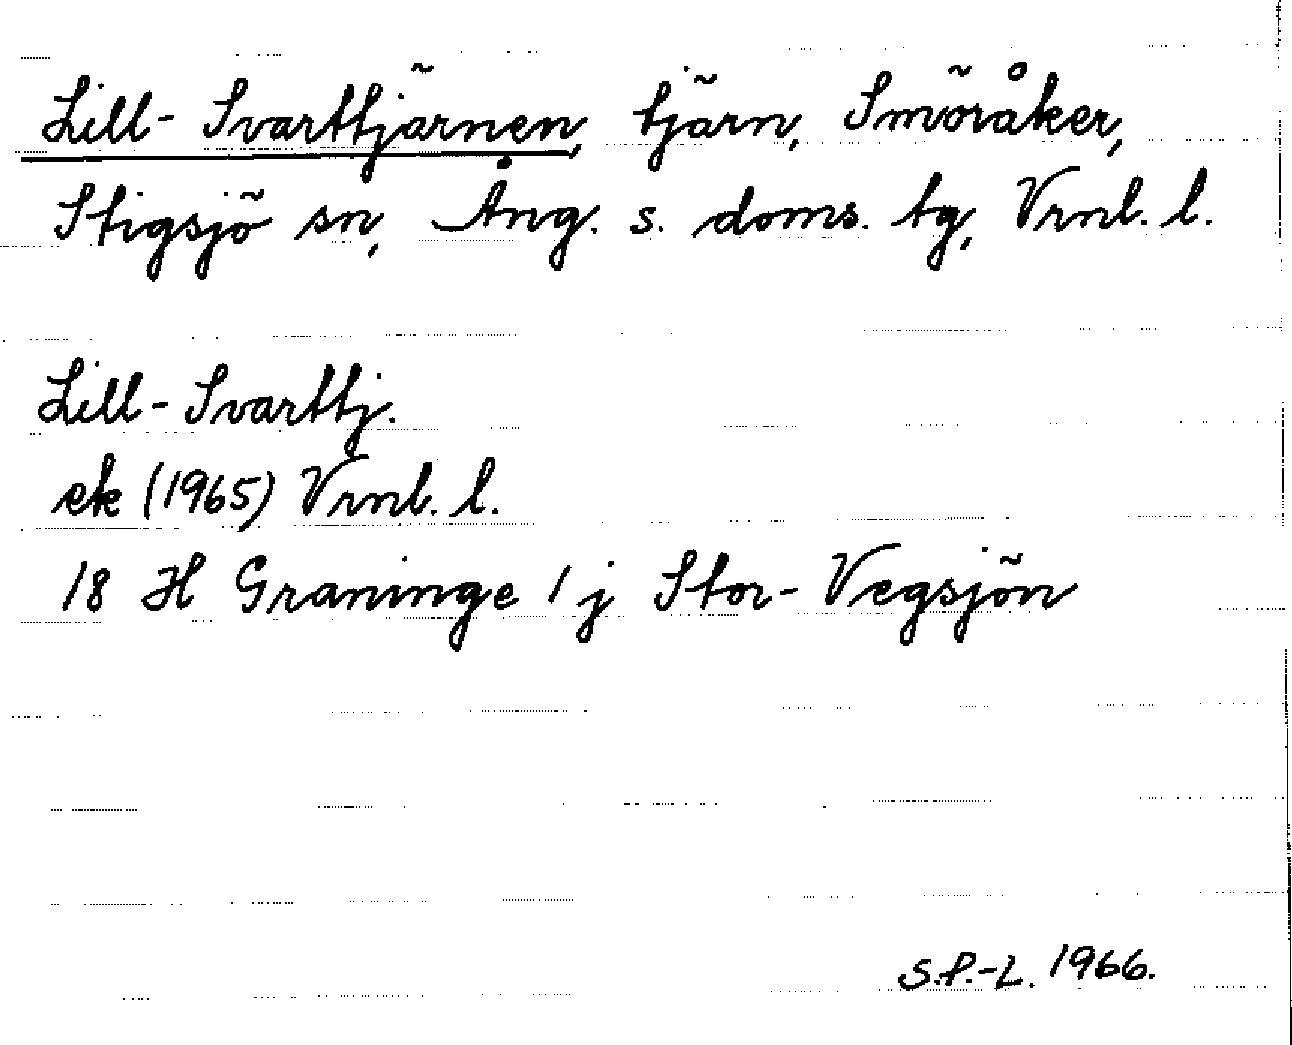 Lill-Svarttjärnen, tjärn, Smöråker,
Stigsjö sn, Ång. s. doms. tg, Vrnl. l.
Lill-Svarttj.
ek (1965) Vrnl. l.
18 H Graninge 1 j Stor-Vegsjön
S.P.-L. 1966.